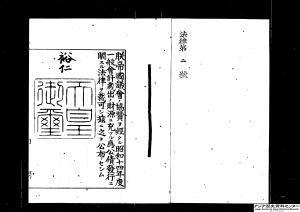 法律第二號
朕帝國議會ノ協贊ヲ經タル昭和十四年度
一般會計歳出ノ財源ニ充ツル爲公債發行ニ
關スル法律ヲ裁可シ茲ニ之ヲ公布セシム
裕仁
天皇
御璽